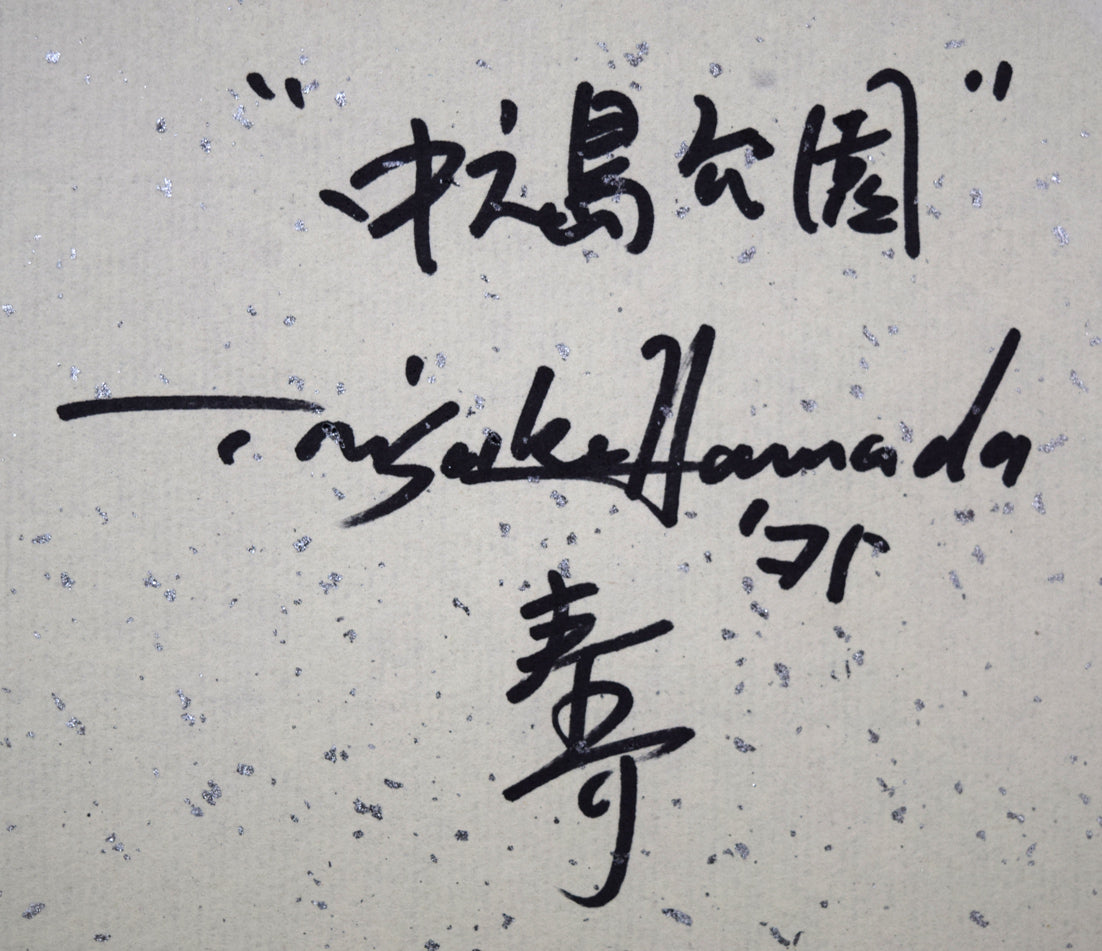 "中之島公園"
Tomisuke Hamada
'75
寿